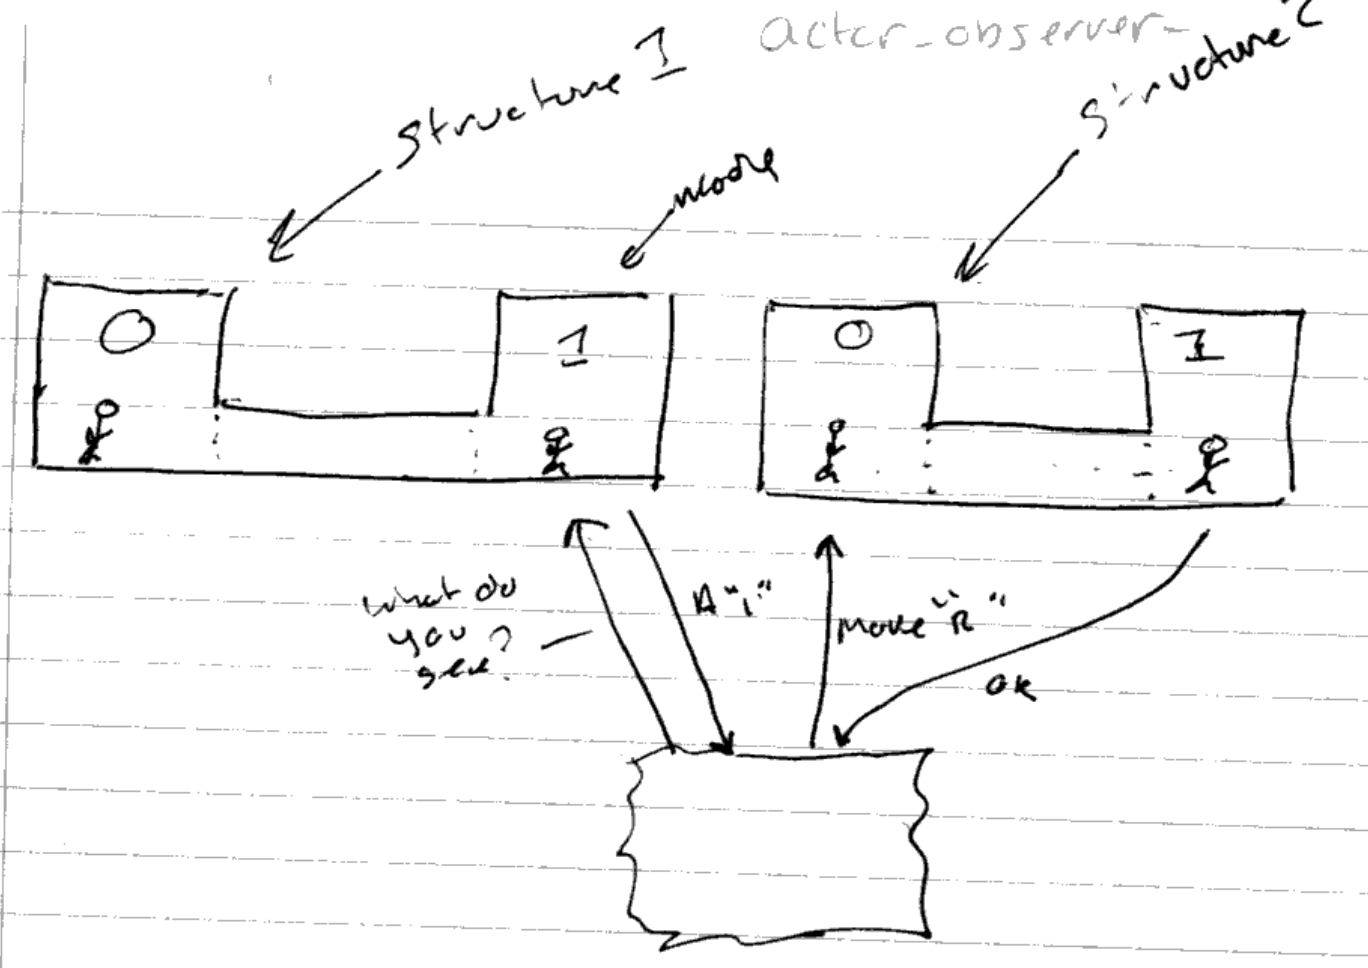 actor-observer-
Structure 1
Structure 2
node
0
1
0
1
What do
you
see?
A "1"
Move "R"
OK